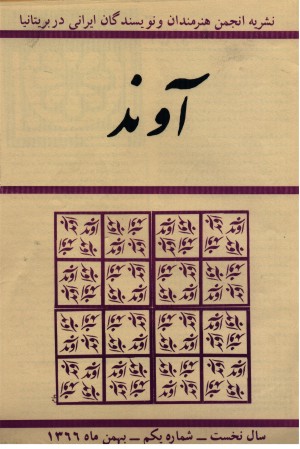 نشریه انجمن هنرمندان و نویسندگان ایرانی در بریتانیا
آوند
سال نخست – شماره یکم – بهمن ماه ۱۳۶۶